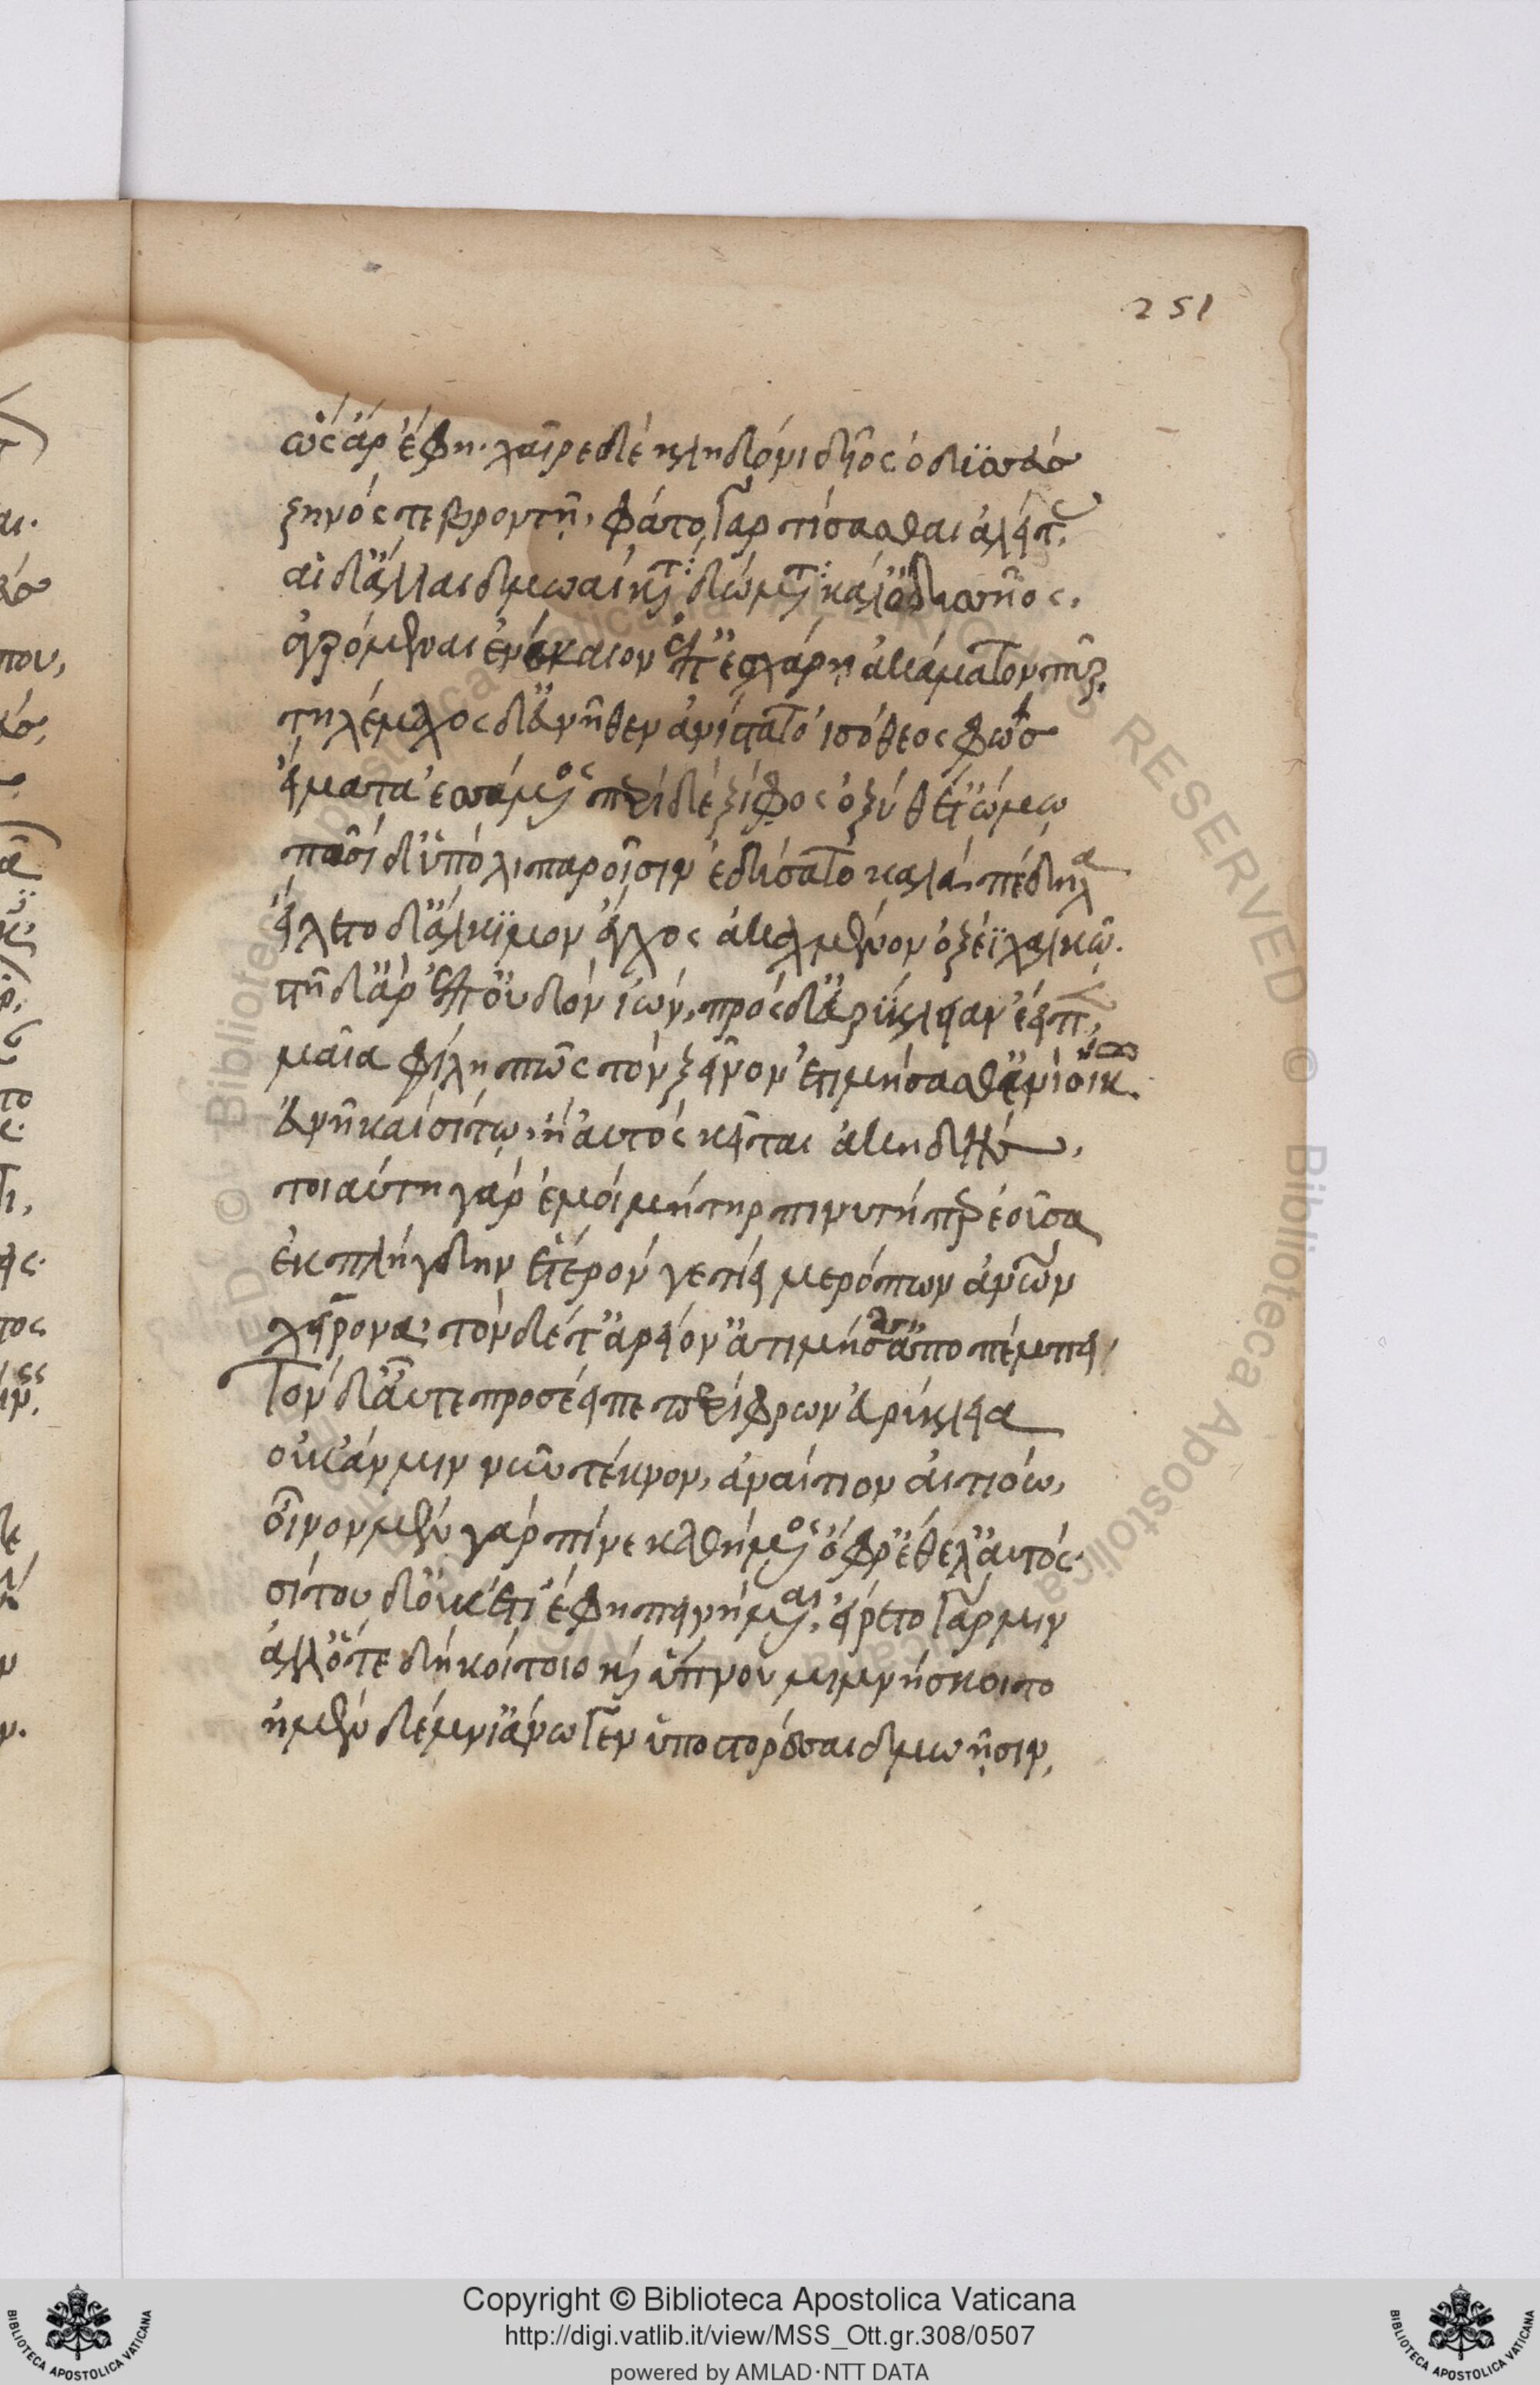 251
ὣς ἄρ ἔφη· χαῖρε δὲ κληδόνι δῖος ὀδϋσσεύσ
ζηνός τε βροντῆ, φάτο γὰρ τίσασθαι ἀλείτ
αἱ δ' ἄλλαι δμωαὶ κτ δώματ κάλ' ὀδυσσῆος,
ἀγρόμεναι ἐνέκαιον ἐπ' ἐσχάρῃ ἀκάματον πῦρ
τηλέμαχος δ' εὐνῆθεν ἀνίστατο ἰσόθεος φώσ
εἵματα ἑσσάμενος περὶ δὲ ξίφος ὀξὺ θέτ' ὤμω
ποσὶ δ' ὑπὸ λιπαροῖσιν ἐδήσατο καλὰ πέδιλα
εἵλετο δ' ἄλκϊμον ἔγχος ἀκαχμένον ὀξέϊ χαλκῶ.
στῆ δ' ἄρ' ἐπ' οὐδὸν ἰών, πρὸς δ' εὐρύκλειαν ἔειπ,
μαῖα φίλη πῶς τὸν ξεῖνον ἐτιμήσασθ' ἐνὶ οἴκω
εὐνῆ καὶ σίτω, ἢ αὐτὸς κεῖται ἀκηδής,
τοιαύτη γὰρ ἐμοὶ μήτηρ πινυτή περ ἐοῦσα
ἐκπλήγδην ἕτερόν γε τίει μερόπων ἀνων
χείρονα· τὸν δέ τ' ἀρείον' ἀτιμήσασ' ἀποπέμπει
Τὸν δ' αὖτε προσέειπε περίφρων εὐρύκλεια
οὐκ ἄν μιν νῦν τέκνον, ἀναίτιον αἰτιόω,
οἶνον μὲν γὰρ πῖνε καθήμενος ὄφρ' ἔθελ' αὐτός·
σίτου δ' οὐκέτι ἔφη πεινήμεναι, εἴρετο γάρ μιν
ἀλλ' ὅτε δὴ κοίτοιο καὶ ὕπνου μιμνήσκοιτο
ἡ μὲν δέμνι' ἄνωγεν ὑποστορέσαι δμωῇσιν,
Copyright © Biblioteca Apostolica Vaticana
http://digi.vatlib.it/view/MSS_Ott.gr.308/0507
powered by AMLAD·NTT DATA